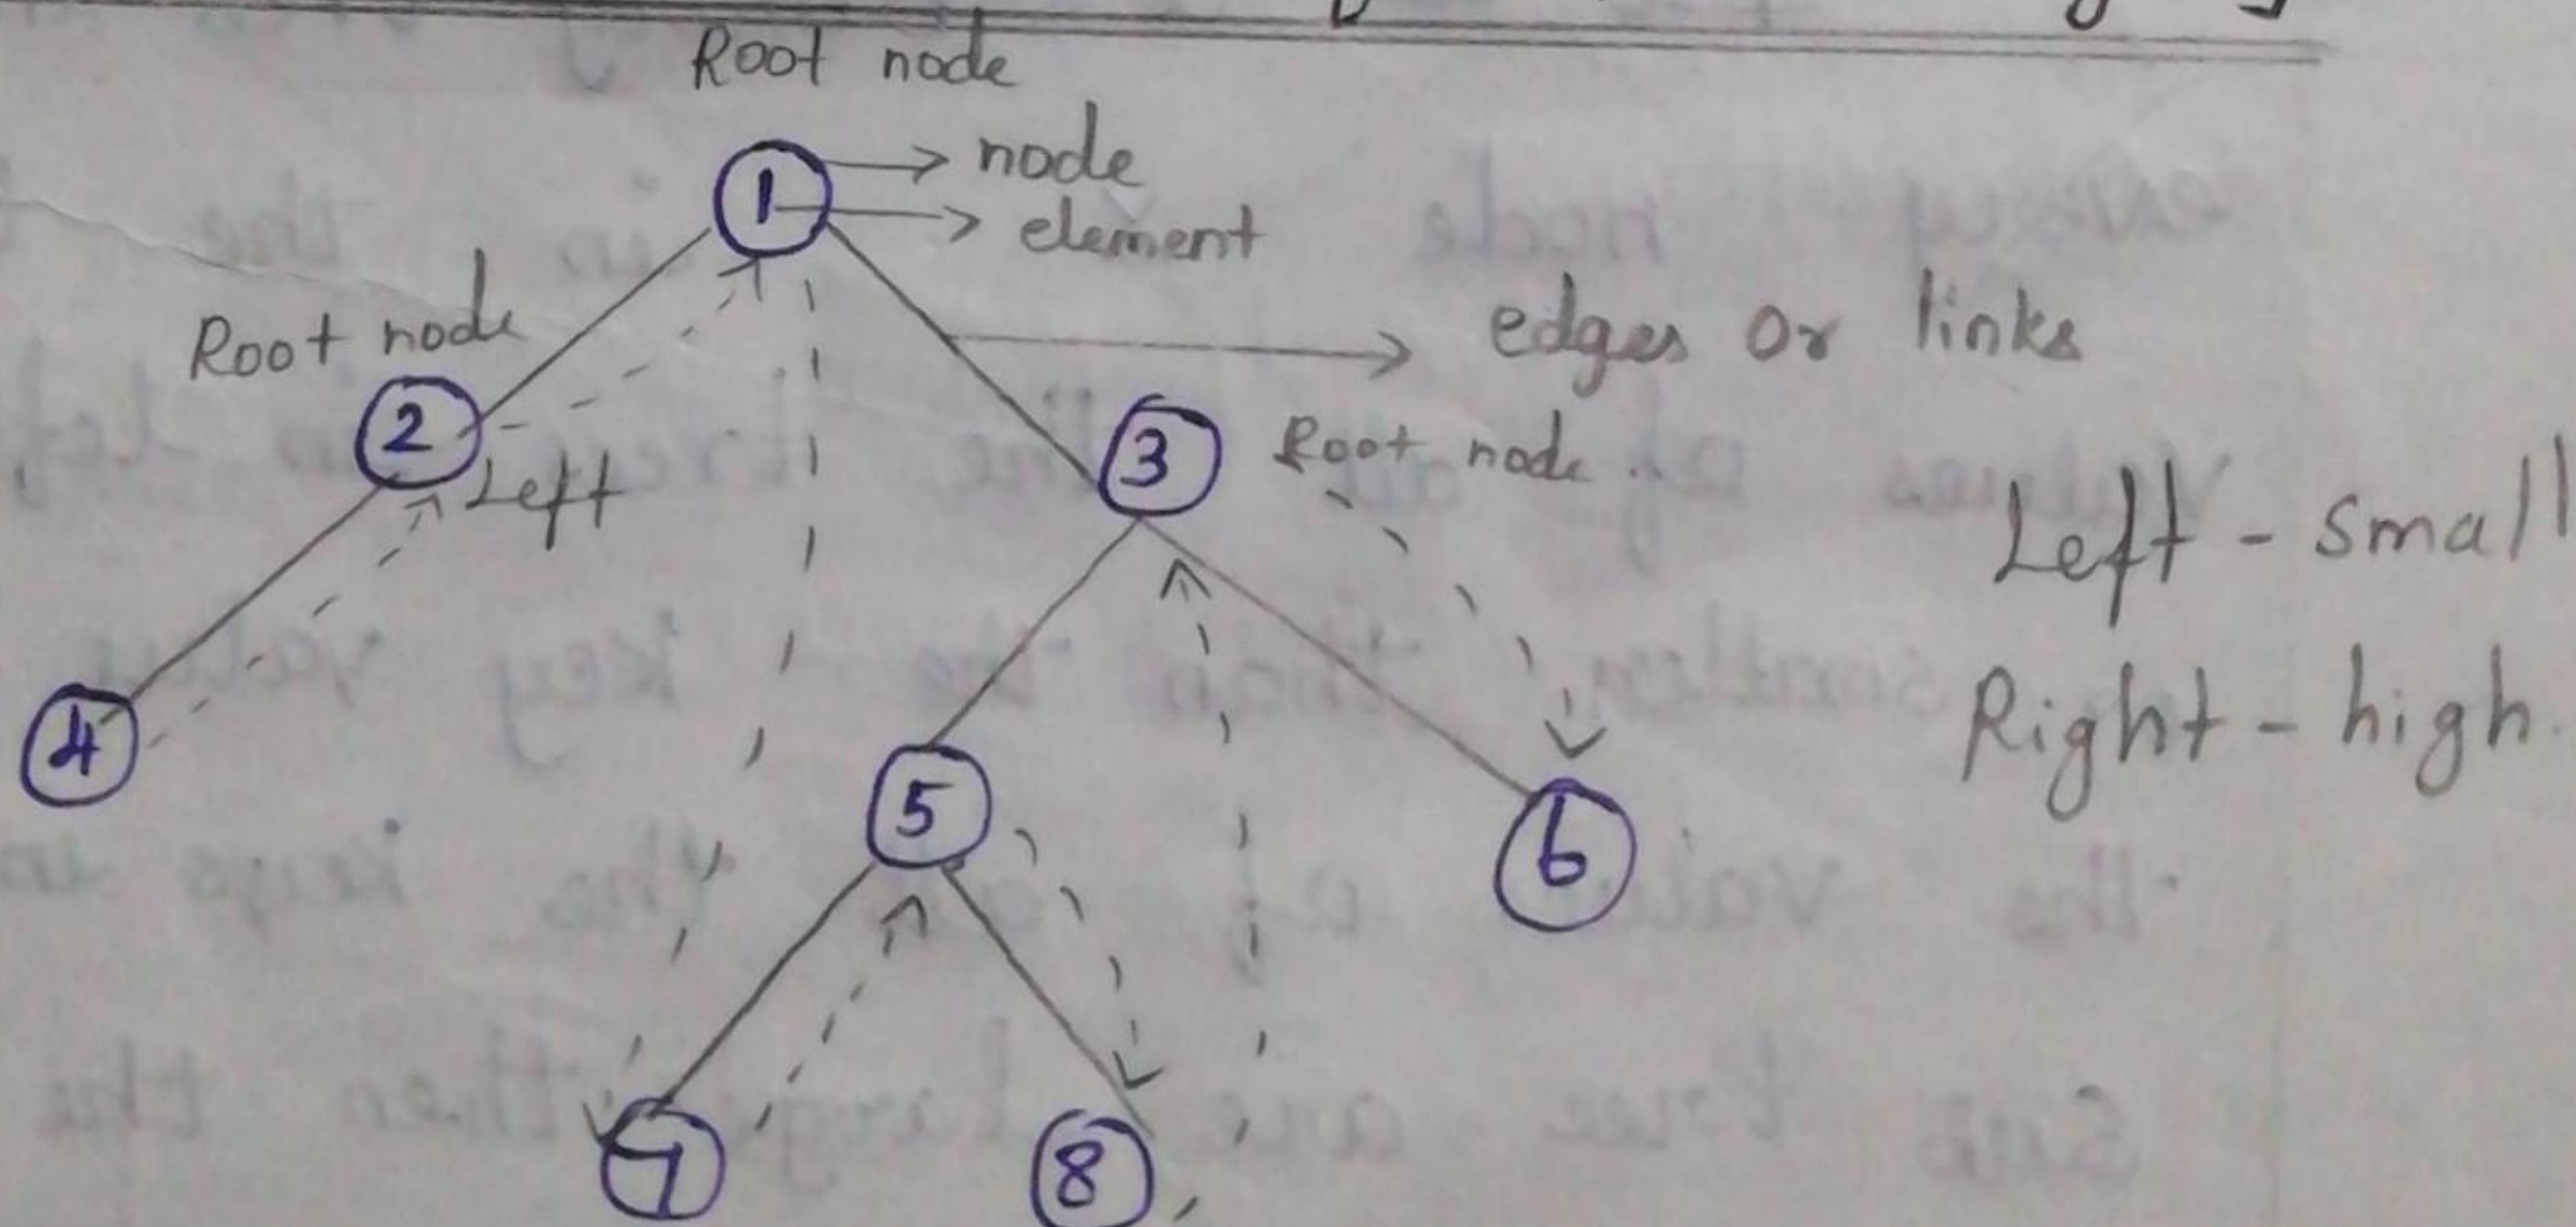 Root node
1 → node
→ element
Root node
edges or links
2
3 Root node.
Left
Left - small
4
Right - high.
5
6
7
8